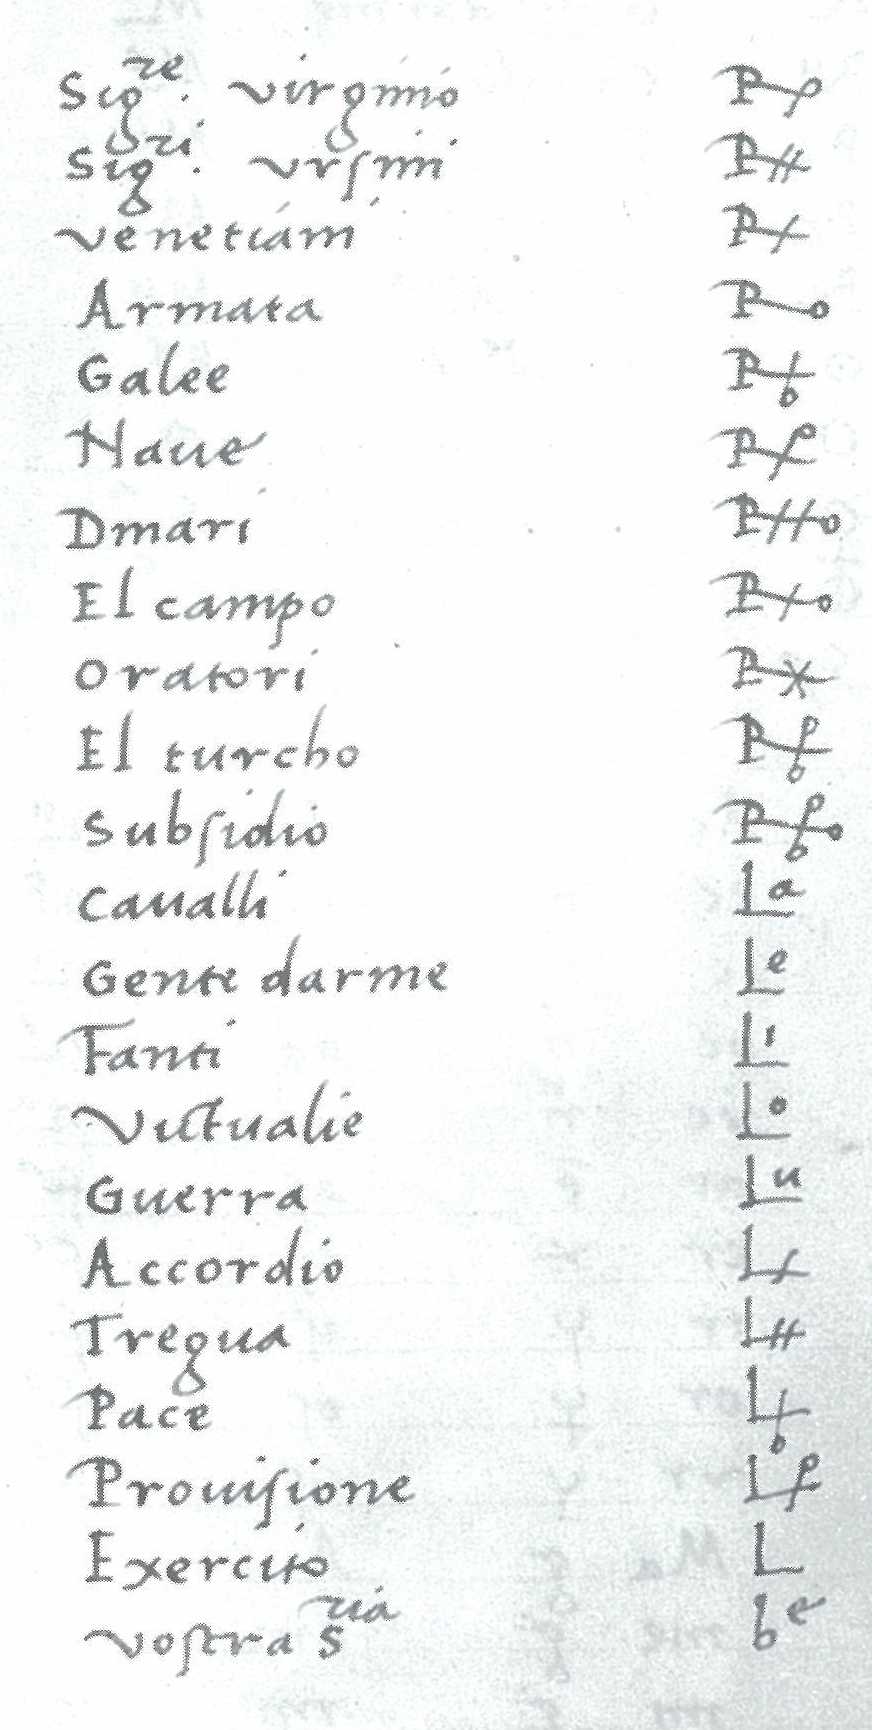 Sig^re. virginio
Sig^ri. vrsini
venetiani
Armata
Galee
Naue
Dmari
El campo
Oratori
El turcho
Subsidio
Caualli La
Gente darme Le
Fanti Li
Victualie Lo
Guerra Lu
Accordio
Tregua
Pace
Prouisione
Exercito L
vostra S^ria b^e